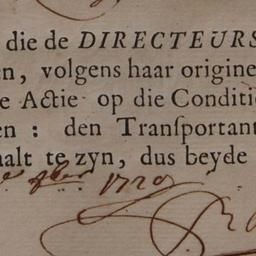 die de DIRECTEURS
en, volgens haar origine
e Actie op die Conditi
en : den Tranſportant
aalt te zyn, dus beyde
1720